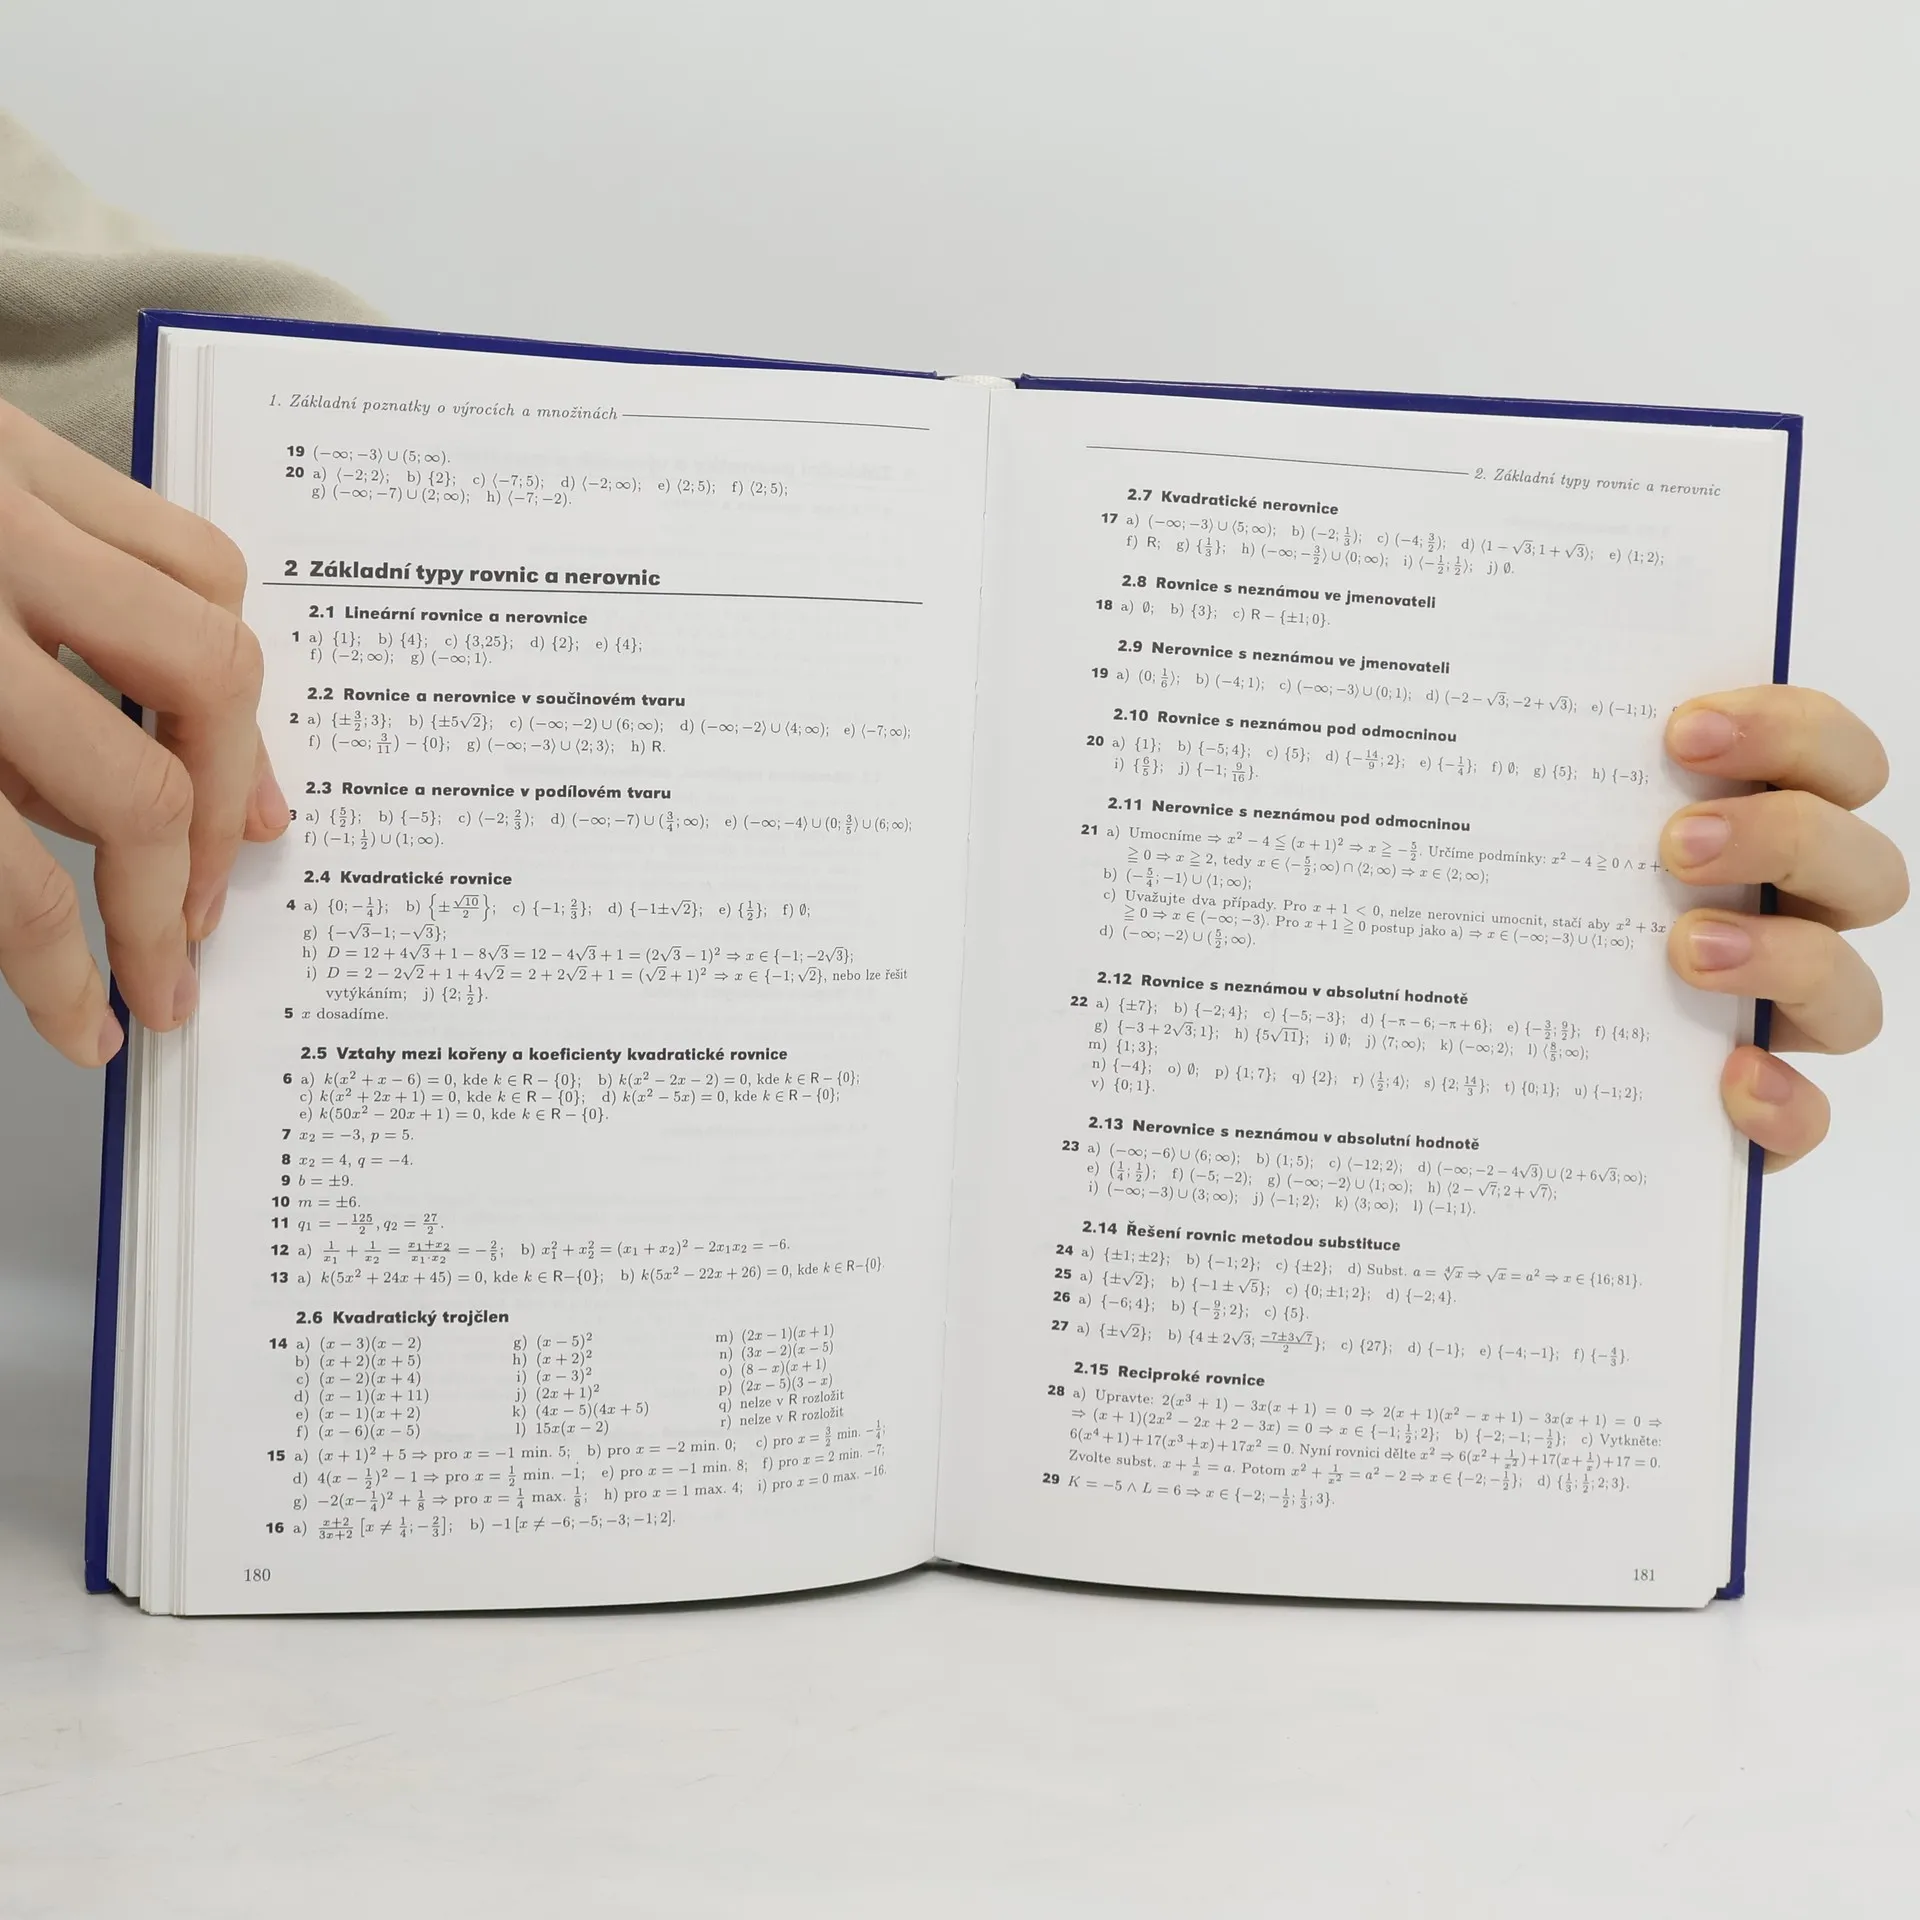 1. Základní poznatky o výrocích a množinách
19 (−∞; −3⟩ ∪ (5; ∞).
20 a) ⟨−2; 2⟩; b) {2}; c) ⟨−7; 5⟩; d) ⟨−2; ∞); e) ⟨2; 5⟩; f) ⟨2; 5⟩;
g) (−∞; −7) ∪ (2; ∞); h) ⟨−7; −2⟩.
2 Základní typy rovnic a nerovnic
2.1 Lineární rovnice a nerovnice
1 a) {1}; b) {4}; c) {3,25}; d) {2}; e) {4};
f) (−2; ∞); g) (−∞; 1⟩.
2.2 Rovnice a nerovnice v součinovém tvaru
2 a) {±3/2; 3}; b) {±5√2}; c) (−∞; −2) ∪ (6; ∞); d) (−∞; −2⟩ ∪ ⟨4; ∞); e) ⟨−7; ∞);
f) (−∞; 3/11) − {0}; g) (−∞; −3⟩ ∪ ⟨2; 3⟩; h) R.
2.3 Rovnice a nerovnice v podílovém tvaru
3 a) {5/2}; b) {−5}; c) (−2; 2/3); d) (−∞; −7) ∪ (3/4; ∞); e) (−∞; −4) ∪ (0; 3/5) ∪ (6; ∞);
f) (−1; 1/2) ∪ (1; ∞).
2.4 Kvadratické rovnice
4 a) {0; −1/4}; b) {±√10/2}; c) {−1; 2/3}; d) {−1±√2}; e) {1/2}; f) ∅;
g) {−√3−1; −√3};
h) D = 12 + 4√3 + 1 − 8√3 = 12 − 4√3 + 1 = (2√3 − 1)² ⇒ x ∈ {−1; −2√3};
i) D = 2 − 2√2 + 1 + 4√2 = 2 + 2√2 + 1 = (√2 + 1)² ⇒ x ∈ {−1; √2}, nebo lze řešit
vytýkáním; j) {2; 1/2}.
5 x dosadíme.
2.5 Vztahy mezi kořeny a koeficienty kvadratické rovnice
6 a) k(x² + x − 6) = 0, kde k ∈ R − {0}; b) k(x² − 2x − 2) = 0, kde k ∈ R − {0};
c) k(x² + 2x + 1) = 0, kde k ∈ R − {0}; d) k(x² − 5x) = 0, kde k ∈ R − {0};
e) k(50x² − 20x + 1) = 0, kde k ∈ R − {0}.
7 x₂ = −3, p = 5.
8 x₂ = 4, q = −4.
9 b = ±9.
10 m = ±6.
11 q₁ = −125/2, q₂ = 27/2.
12 a) 1/x₁ + 1/x₂ = (x₁+x₂)/(x₁·x₂) = −2/5; b) x₁² + x₂² = (x₁ + x₂)² − 2x₁x₂ = −6.
13 a) k(5x² + 24x + 45) = 0, kde k ∈ R−{0}; b) k(5x² − 22x + 26) = 0, kde k ∈ R−{0}.
2.6 Kvadratický trojčlen
14 a) (x − 3)(x − 2) g) (x − 5)² m) (2x − 1)(x + 1)
b) (x + 2)(x + 5) h) (x + 2)² n) (3x − 2)(x − 5)
c) (x − 2)(x + 4) i) (x − 3)² o) (8 − x)(x + 1)
d) (x − 1)(x + 11) j) (2x + 1)² p) (2x − 5)(3 − x)
e) (x − 1)(x + 2) k) (4x − 5)(4x + 5) q) nelze v R rozložit
f) (x − 6)(x − 5) l) 15x(x − 2) r) nelze v R rozložit
15 a) (x + 1)² + 5 ⇒ pro x = −1 min. 5; b) pro x = −2 min. 0; c) pro x = 3/2 min. −1/4;
d) 4(x − 1/2)² − 1 ⇒ pro x = 1/2 min. −1; e) pro x = −1 min. 8; f) pro x = 2 min. −7;
g) −2(x−1/4)² + 1/8 ⇒ pro x = 1/4 max. 1/8; h) pro x = 1 max. 4; i) pro x = 0 max. −16.
16 a) (x+2)/(3x+2) [x ≠ 1/4; −2/3]; b) −1 [x ≠ −6; −5; −3; −1; 2].
180
2. Základní typy rovnic a nerovnic
2.7 Kvadratické nerovnice
17 a) (−∞; −3⟩ ∪ ⟨5; ∞); b) (−2; 1/3); c) (−4; 3/2); d) ⟨1 − √3; 1 + √3⟩; e) ⟨1; 2⟩;
f) R; g) {1/3}; h) (−∞; −3/2⟩ ∪ ⟨0; ∞); i) ⟨−1/2; 1/2⟩; j) ∅.
2.8 Rovnice s neznámou ve jmenovateli
18 a) ∅; b) {3}; c) R − {±1; 0}.
2.9 Nerovnice s neznámou ve jmenovateli
19 a) (0; 1/6); b) (−4; 1); c) (−∞; −3) ∪ (0; 1); d) (−2 − √3; −2 + √3); e) (−1; 1);
2.10 Rovnice s neznámou pod odmocninou
20 a) {1}; b) {−5; 4}; c) {5}; d) {−14/9; 2}; e) {−1/4}; f) ∅; g) {5}; h) {−3};
i) {6/5}; j) {−1; 9/16}.
2.11 Nerovnice s neznámou pod odmocninou
21 a) Umocníme ⇒ x² − 4 ≦ (x + 1)² ⇒ x ≧ −5/2. Určíme podmínky: x² − 4 ≧ 0 ∧ x +
≧ 0 ⇒ x ≧ 2, tedy x ∈ ⟨−5/2; ∞) ∩ ⟨2; ∞) ⇒ x ∈ ⟨2; ∞);
b) (−5/4; −1⟩ ∪ ⟨1; ∞);
c) Uvažujte dva případy. Pro x + 1 < 0, nelze nerovnici umocnit, stačí aby x² + 3x
≧ 0 ⇒ x ∈ (−∞; −3⟩. Pro x + 1 ≧ 0 postup jako a) ⇒ x ∈ (−∞; −3⟩ ∪ ⟨1; ∞);
d) (−∞; −2⟩ ∪ (5/2; ∞).
2.12 Rovnice s neznámou v absolutní hodnotě
22 a) {±7}; b) {−2; 4}; c) {−5; −3}; d) {−π − 6; −π + 6}; e) {−3/2; 9/2}; f) {4; 8};
g) {−3 + 2√3; 1}; h) {5√11}; i) ∅; j) ⟨7; ∞); k) (−∞; 2⟩; l) ⟨8/5; ∞);
m) {1; 3};
n) {−4}; o) ∅; p) {1; 7}; q) {2}; r) ⟨1/2; 4⟩; s) {2; 14/3}; t) {0; 1}; u) {−1; 2};
v) {0; 1}.
2.13 Nerovnice s neznámou v absolutní hodnotě
23 a) (−∞; −6⟩ ∪ ⟨6; ∞); b) (1; 5); c) ⟨−12; 2⟩; d) (−∞; −2 − 4√3) ∪ (2 + 6√3; ∞);
e) (1/4; 1/2); f) (−5; −2); g) (−∞; −2⟩ ∪ ⟨1; ∞); h) ⟨2 − √7; 2 + √7⟩;
i) (−∞; −3) ∪ (3; ∞); j) ⟨−1; 2⟩; k) ⟨3; ∞); l) (−1; 1).
2.14 Řešení rovnic metodou substituce
24 a) {±1; ±2}; b) {−1; 2}; c) {±2}; d) Subst. a = ∜x ⇒ √x = a² ⇒ x ∈ {16; 81}.
25 a) {±√2}; b) {−1 ± √5}; c) {0; ±1; 2}; d) {−2; 4}.
26 a) {−6; 4}; b) {−9/2; 2}; c) {5}.
27 a) {±√2}; b) {4 ± 2√3; (−7±3√7)/2}; c) {27}; d) {−1}; e) {−4; −1}; f) {−4/3}.
2.15 Reciproké rovnice
28 a) Upravte: 2(x³ + 1) − 3x(x + 1) = 0 ⇒ 2(x + 1)(x² − x + 1) − 3x(x + 1) = 0 ⇒
⇒ (x + 1)(2x² − 2x + 2 − 3x) = 0 ⇒ x ∈ {−1; 1/2; 2}; b) {−2; −1; −1/2}; c) Vytkněte:
6(x⁴ + 1) + 17(x³ + x) + 17x² = 0. Nyní rovnici dělte x² ⇒ 6(x² + 1/x²) + 17(x + 1/x) + 17 = 0.
Zvolte subst. x + 1/x = a. Potom x² + 1/x² = a² − 2 ⇒ x ∈ {−2; −1/2}; d) {1/3; 1/2; 2; 3}.
29 K = −5 ∧ L = 6 ⇒ x ∈ {−2; −1/2; 1/3; 3}.
181